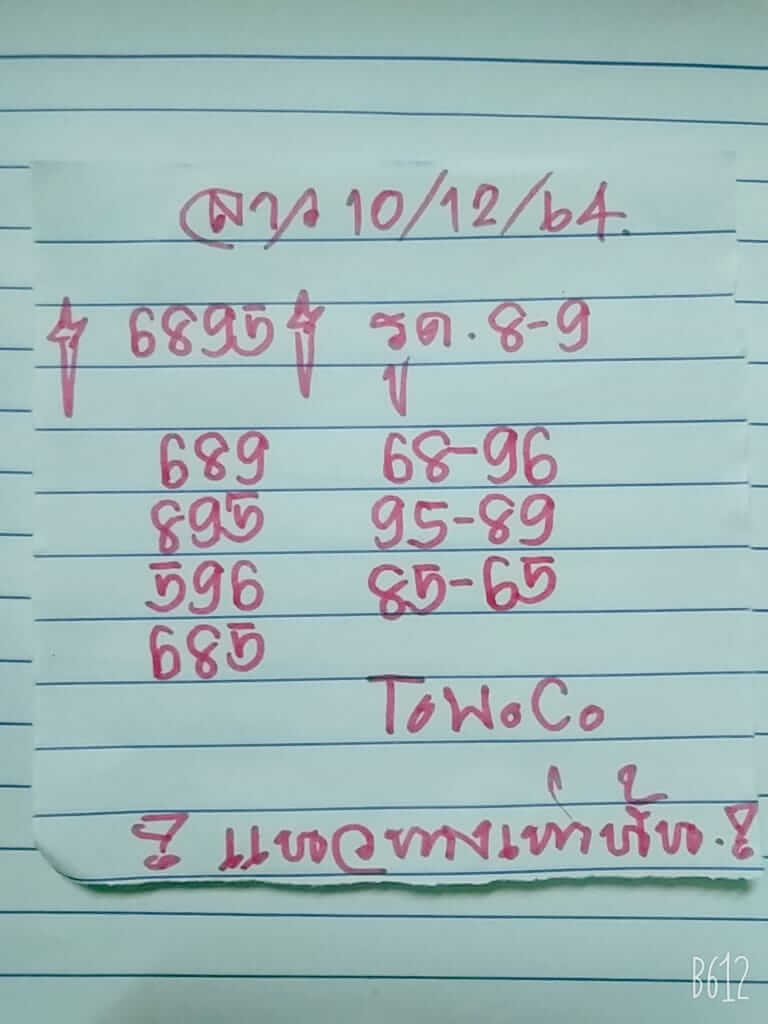 ลาว 10/12/64.
6895 รูด. 8-9
689 68-96
895 95-89
596 85-65
685
ToWoCo
! แนวทางเท่านั้น. !
B612